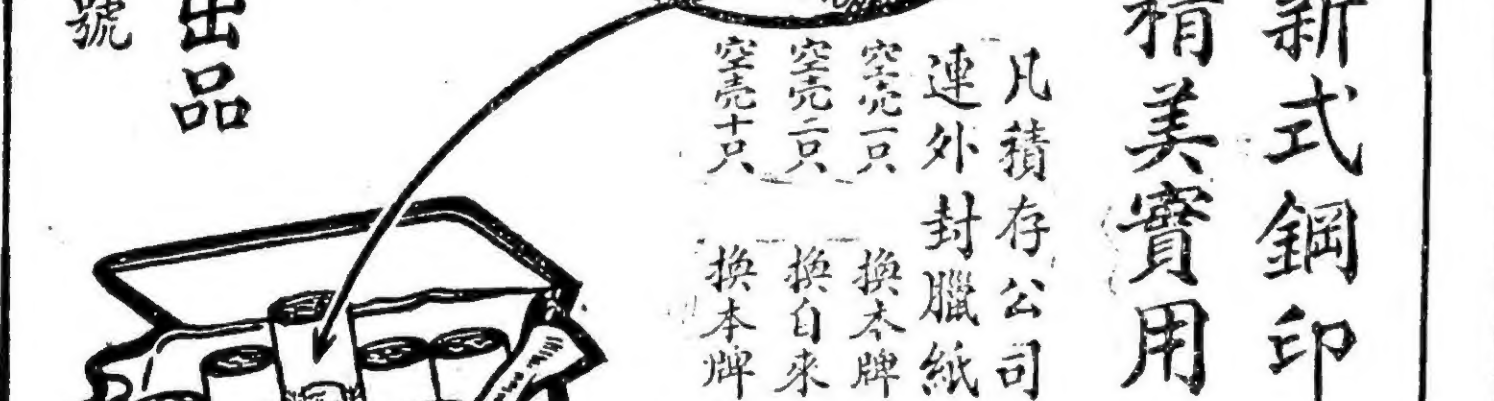 新式鋼印
精美實用
凡積存公司
連外封臘紙
空壳一只 換本牌
空壳二只 換自來
空壳十只 換本牌
出品
號